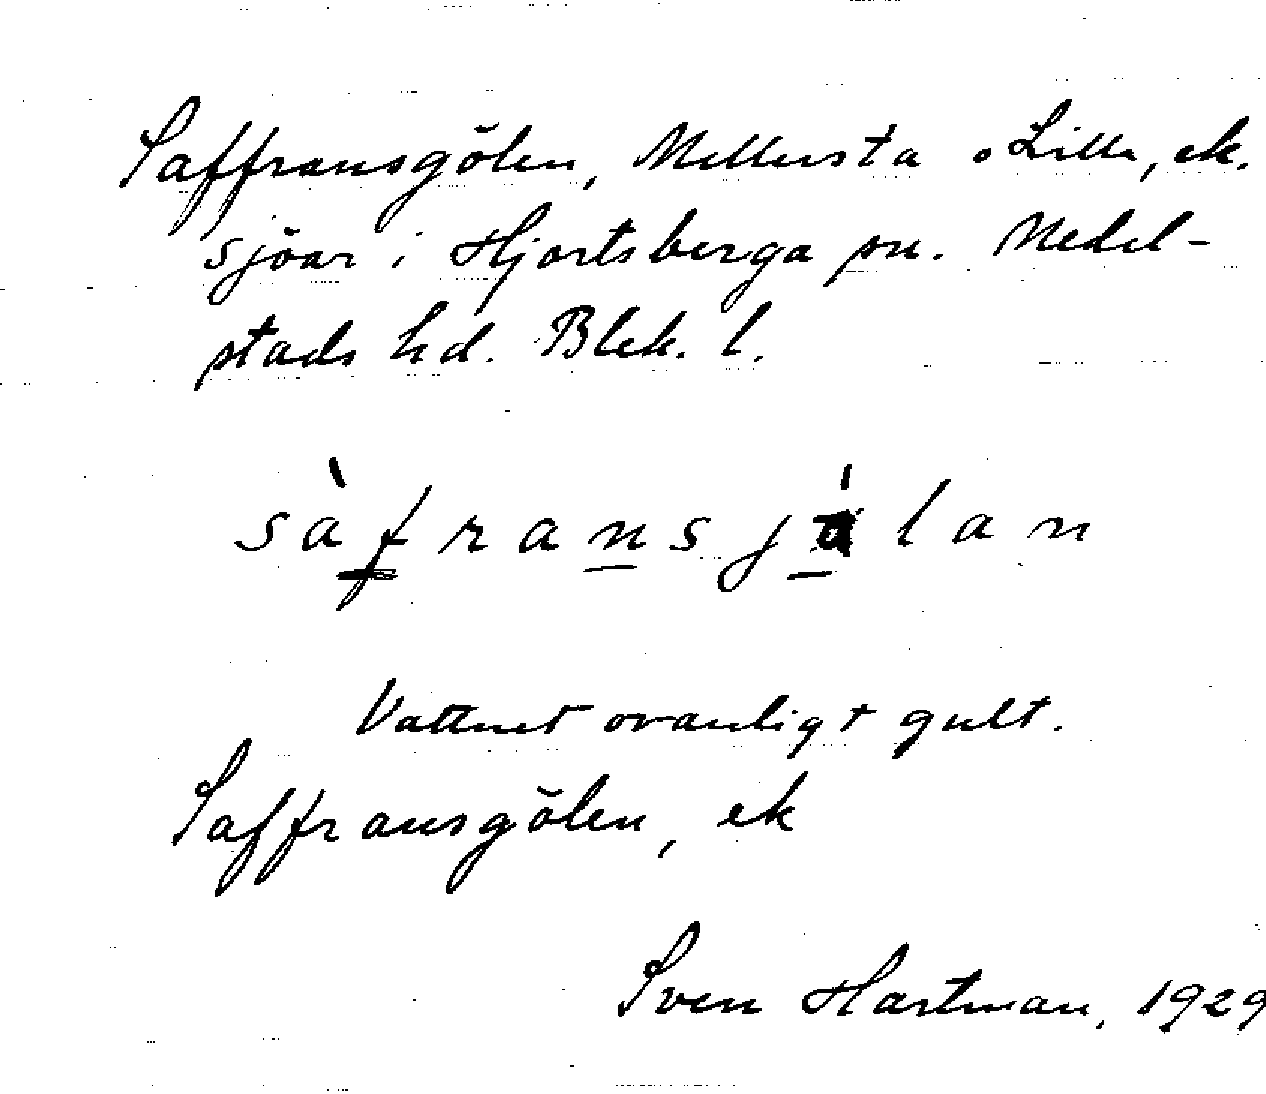 Saffransgölen, Mellersta o Lilla, ek.
sjöar i Hjortsberga sn. Medel-
stads hd. Blek. l.
sàfransjölan
Vattnet ovanligt gult.
Saffransgölen, ek
Sven Hartman, 1929